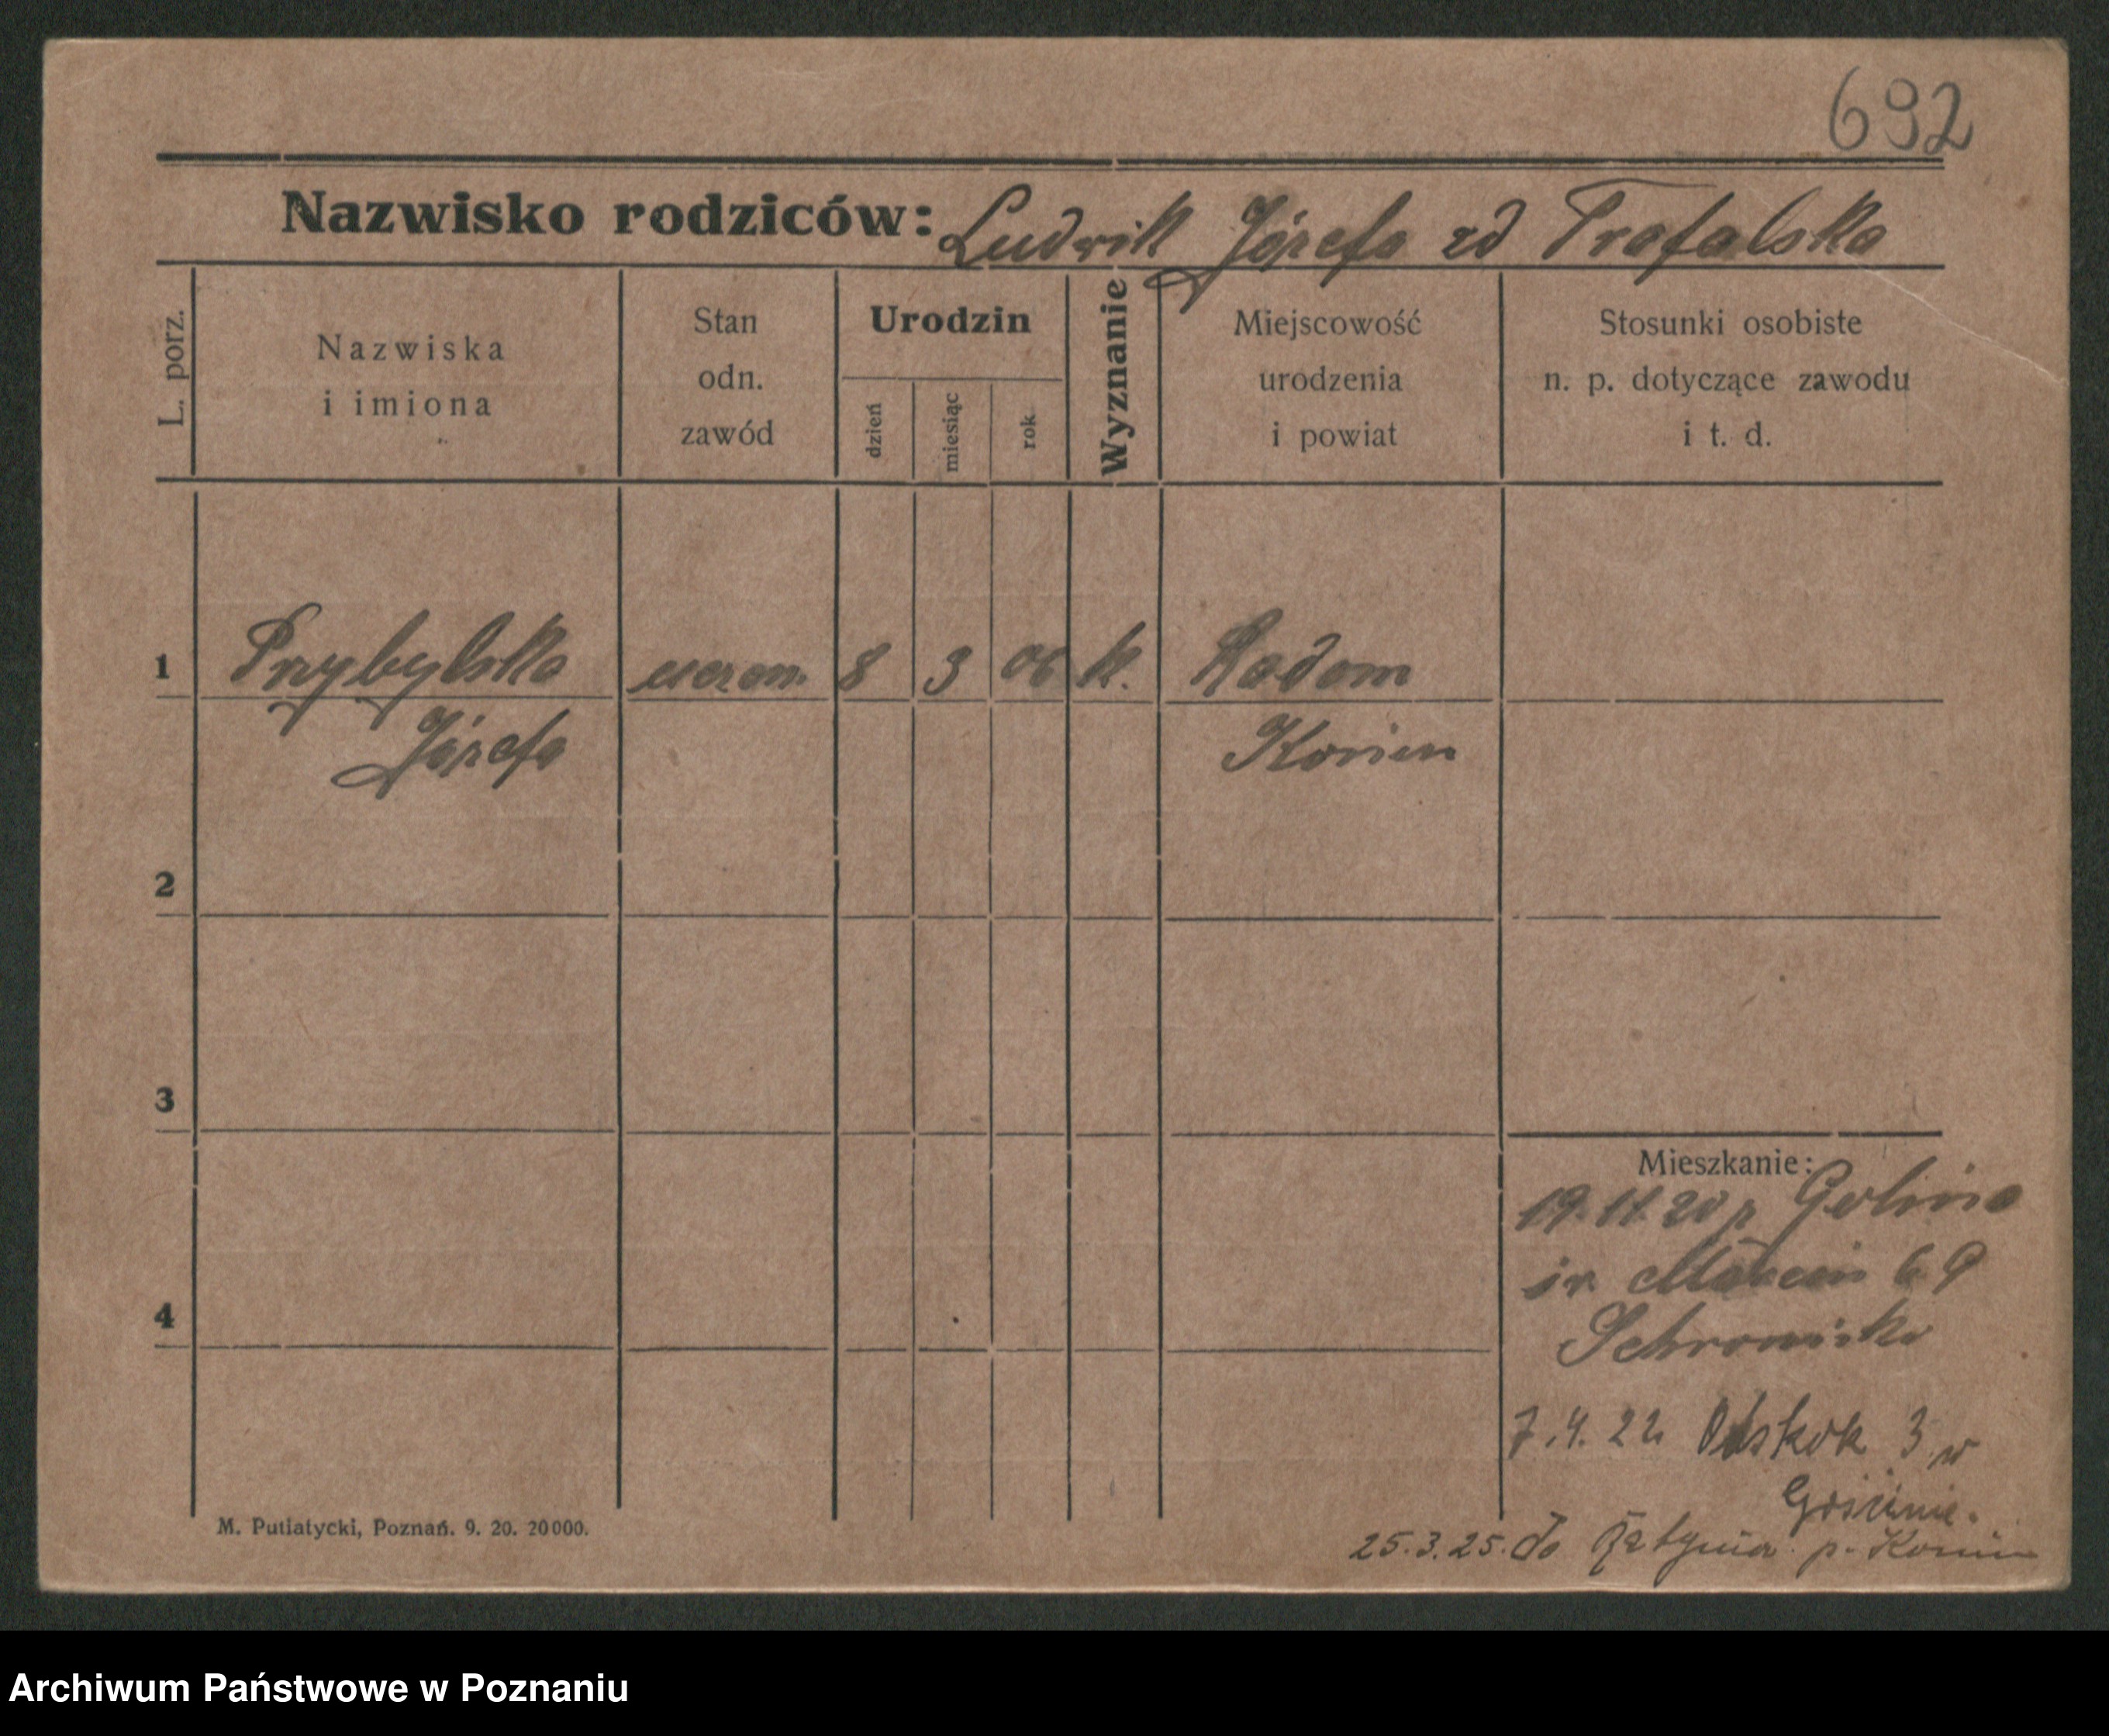 692
Nazwisko rodziców: Ludwik Józefa zd Trafalska
L. porz.
Nazwiska
i imiona
Stan
odn.
zawód
Urodzin
dzień
miesiąc
rok
Wyznanie
Miejscowość
urodzenia
i powiat
Stosunki osobiste
n. p. dotyczące zawodu
i t. d.
1 Przybylska uczen. 8 3 06 k. Radom
Józefa Konin
2
3
4
Mieszkanie:
19.11.20 z Golina
św. Marcin 69
Schronisko
7.4.22 3 w
Gościnie.
25.3.25. do p. Konin
M. Putiatycki, Poznań. 9. 20. 20000.
Archiwum Państwowe w Poznaniu